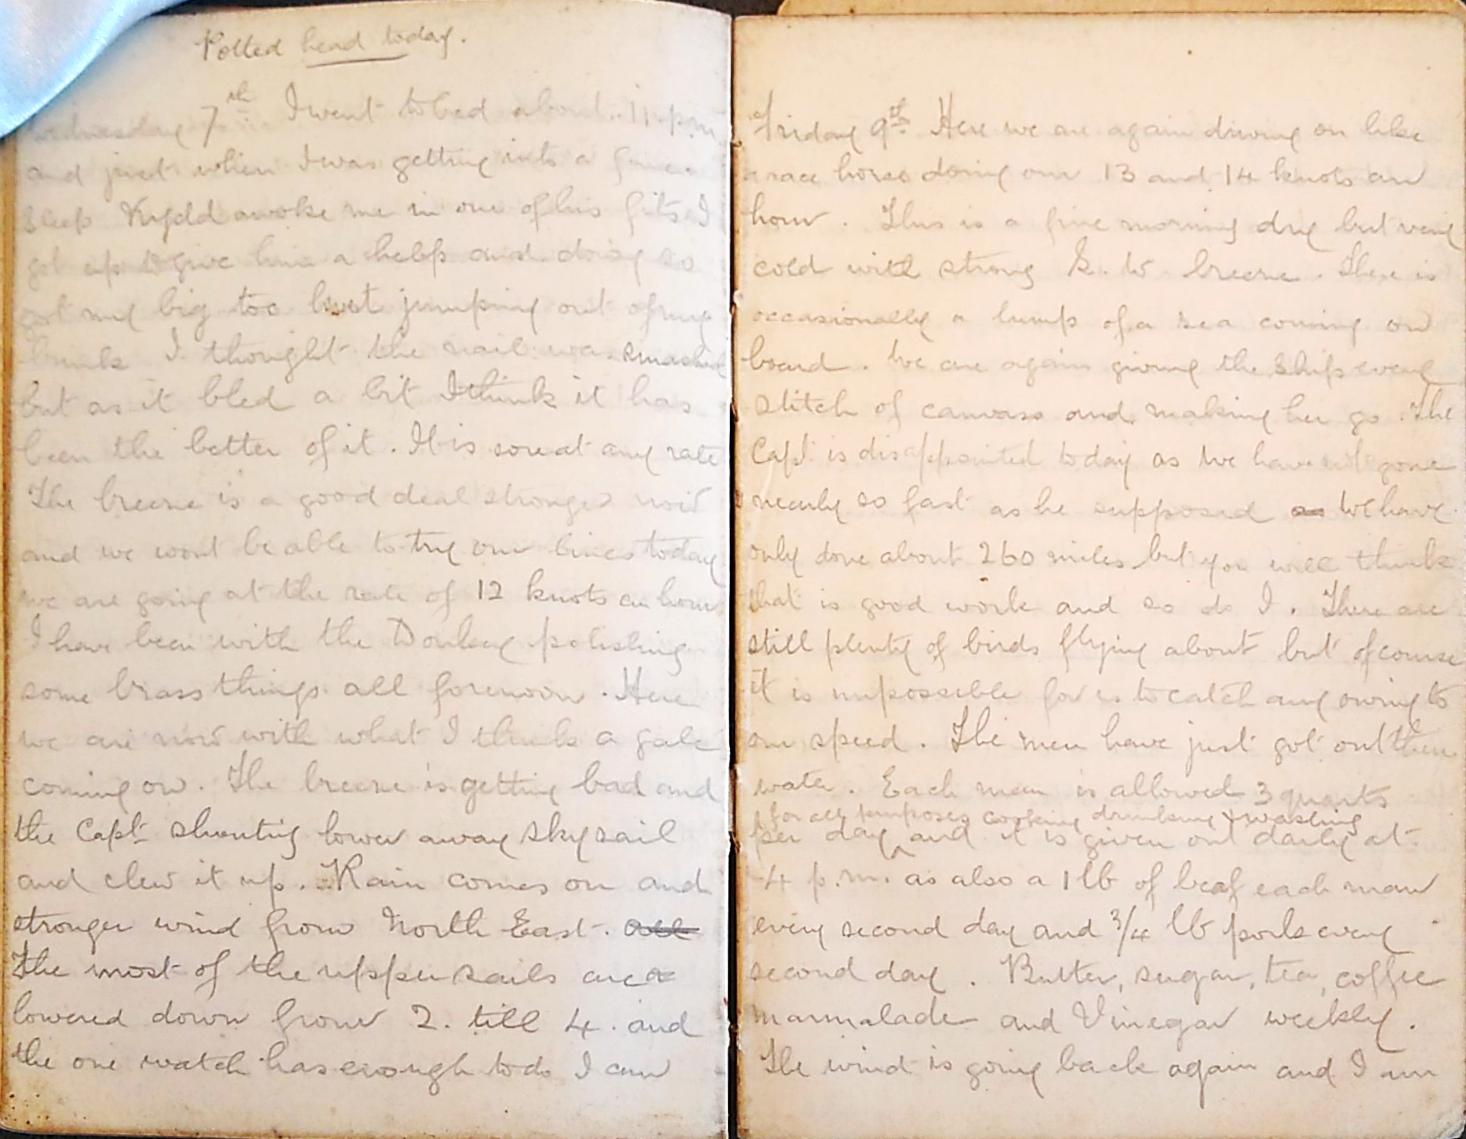 Potted head today.
Wednesday 7th I went to bed about 11 pm
and just when I was getting into a fine
sleep Kydd awoke me in one of his fits I
got up to give him a help and doing so
got my big toe hurt jumping out of my
bunk I thought the nail was smashed
but as it bled a bit I think it has
been the better of it. It is sore at any rate
The breeze is a good deal stronger now
and we wont be able to try our lines today
we are going at the rate of 12 knots an hour
I have been with the Donkey polishing
some brass things all forenoon. Here
we are now with what I think a gale
coming on. The breeze is getting bad and
the Capt shouting lower away skysail
and clew it up. Rain comes on and
stronger wind from North East. all
The most of the upper sails are
lowered down from 2. till 4. and
the one watch has enough to do I can
Friday 9th Here we are again driving on like
a race horse doing our 13 and 14 knots an
hour. This is a fine morning dry but very
cold with strong S. W breeze. There is
occasionally a lump of a sea coming on
board. We are again giving the ship every
stitch of canvass and making her go. The
Capt is disappointed today as we have not gone
nearly so fast as he supposed as We have
only done about 260 miles but you will think
that is good work and so do I. There are
still plenty of birds flying about but of course
it is impossible for us to catch any owing to
our speed. The men have just got out their
water. Each man is allowed 3 quarts
for all purposes cooking drinking & washing
per day and it is given out daily at
4 p.m. as also a 1 lb of beaf each man
every second day and 3/4 lb pork every
second day. Butter, sugar, tea, coffee
marmalade and Vinegar weekly.
The wind is going back again and I am